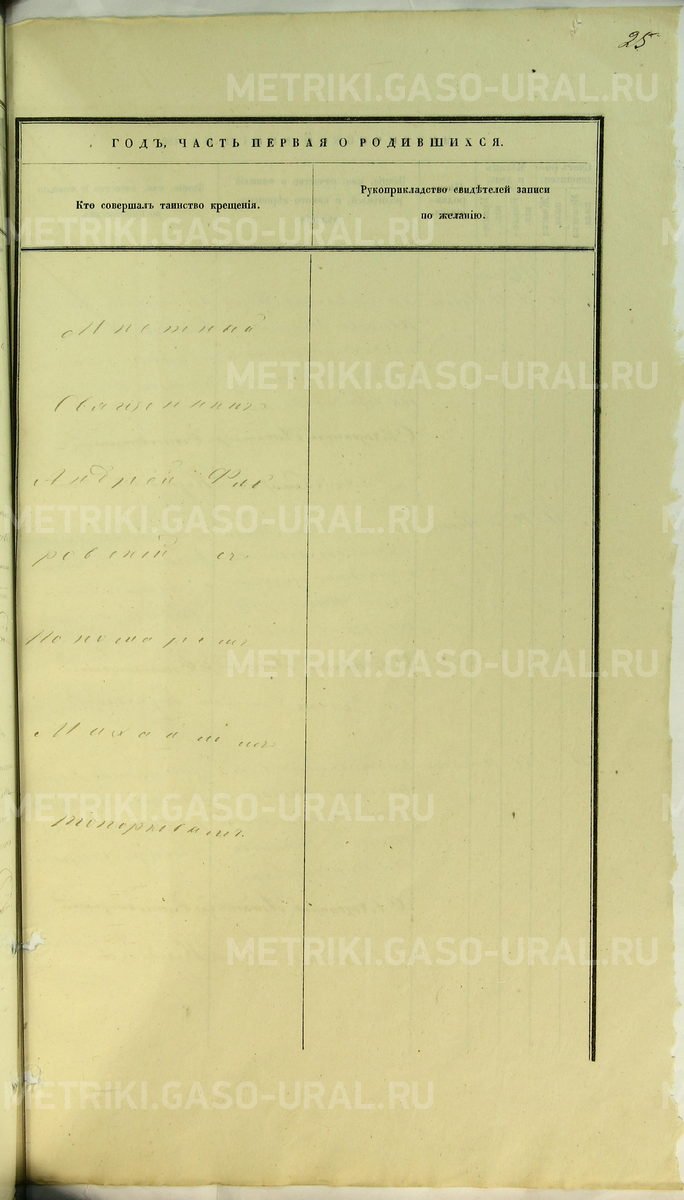 25
ГОДЪ, ЧАСТЬ ПЕРВАЯ О РОДИВШИХСЯ.
Кто совершалъ таинство крещенія.
Рукоприкладство свидѣтелей записи
по желанію.
Мѣстный
Священникъ
Андрей Фло
ровскій съ
Пономаремъ
Михаиломъ
Топорковымъ.
METRIKI.GASO-URAL.RU
METRIKI.GASO-URAL.RU
METRIKI.GASO-URAL.RU
METRIKI.GASO-URAL.RU
METRIKI.GASO-URAL.RU
METRIKI.GASO-URAL.RU
METRIKI.GASO-URAL.RU